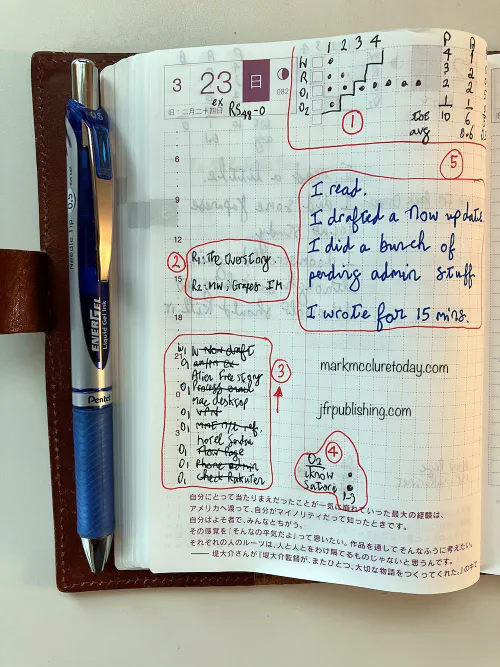 1 2 3 4 P A
W 4 1
R 3 2
O₁ 2 2
O₂ 1 1
10 6
avg
①
3 23 日 082
旧：二月二十四日 ex RS48-0
6
⑤
I read.
I drafted a Now update
I did a bunch of
pending admin stuff
I wrote for 15 mins.
9
12
② R₁: The Overstory.
15 R₂: MW: Grapes IM
18
W₁ W Now draft
21 O₁
Alien Free story
O₁
Mac desktop
O₁ VPN
O₁
3 novel
O₁ Now Page
O₁ Phone admin
O₁ Check Rakuten
③
markmccluretoday.com
jfrpublishing.com
④
O₂
iknow
Satori
1-3
自分にとって当たりまえだったことが一気に崩れていった最大の経験は、
アメリカへ渡って、自分がマイノリティだって知ったときです。
自分はよそ者で、みんなとちがう。
その感覚を『そんなの平気だよ』って思いたい。作品を通してそんなふうに考えたい。
それぞれの人のルーツは、人と人とをわけ隔てるものじゃないと思うんです。
── 堤大介さんが『堤大介監督が、またひとつ、大切な物語をつくってくれた。』の中で
Needle Tip 0.5
ENERGEL
Liquid Gel Ink
Pentel